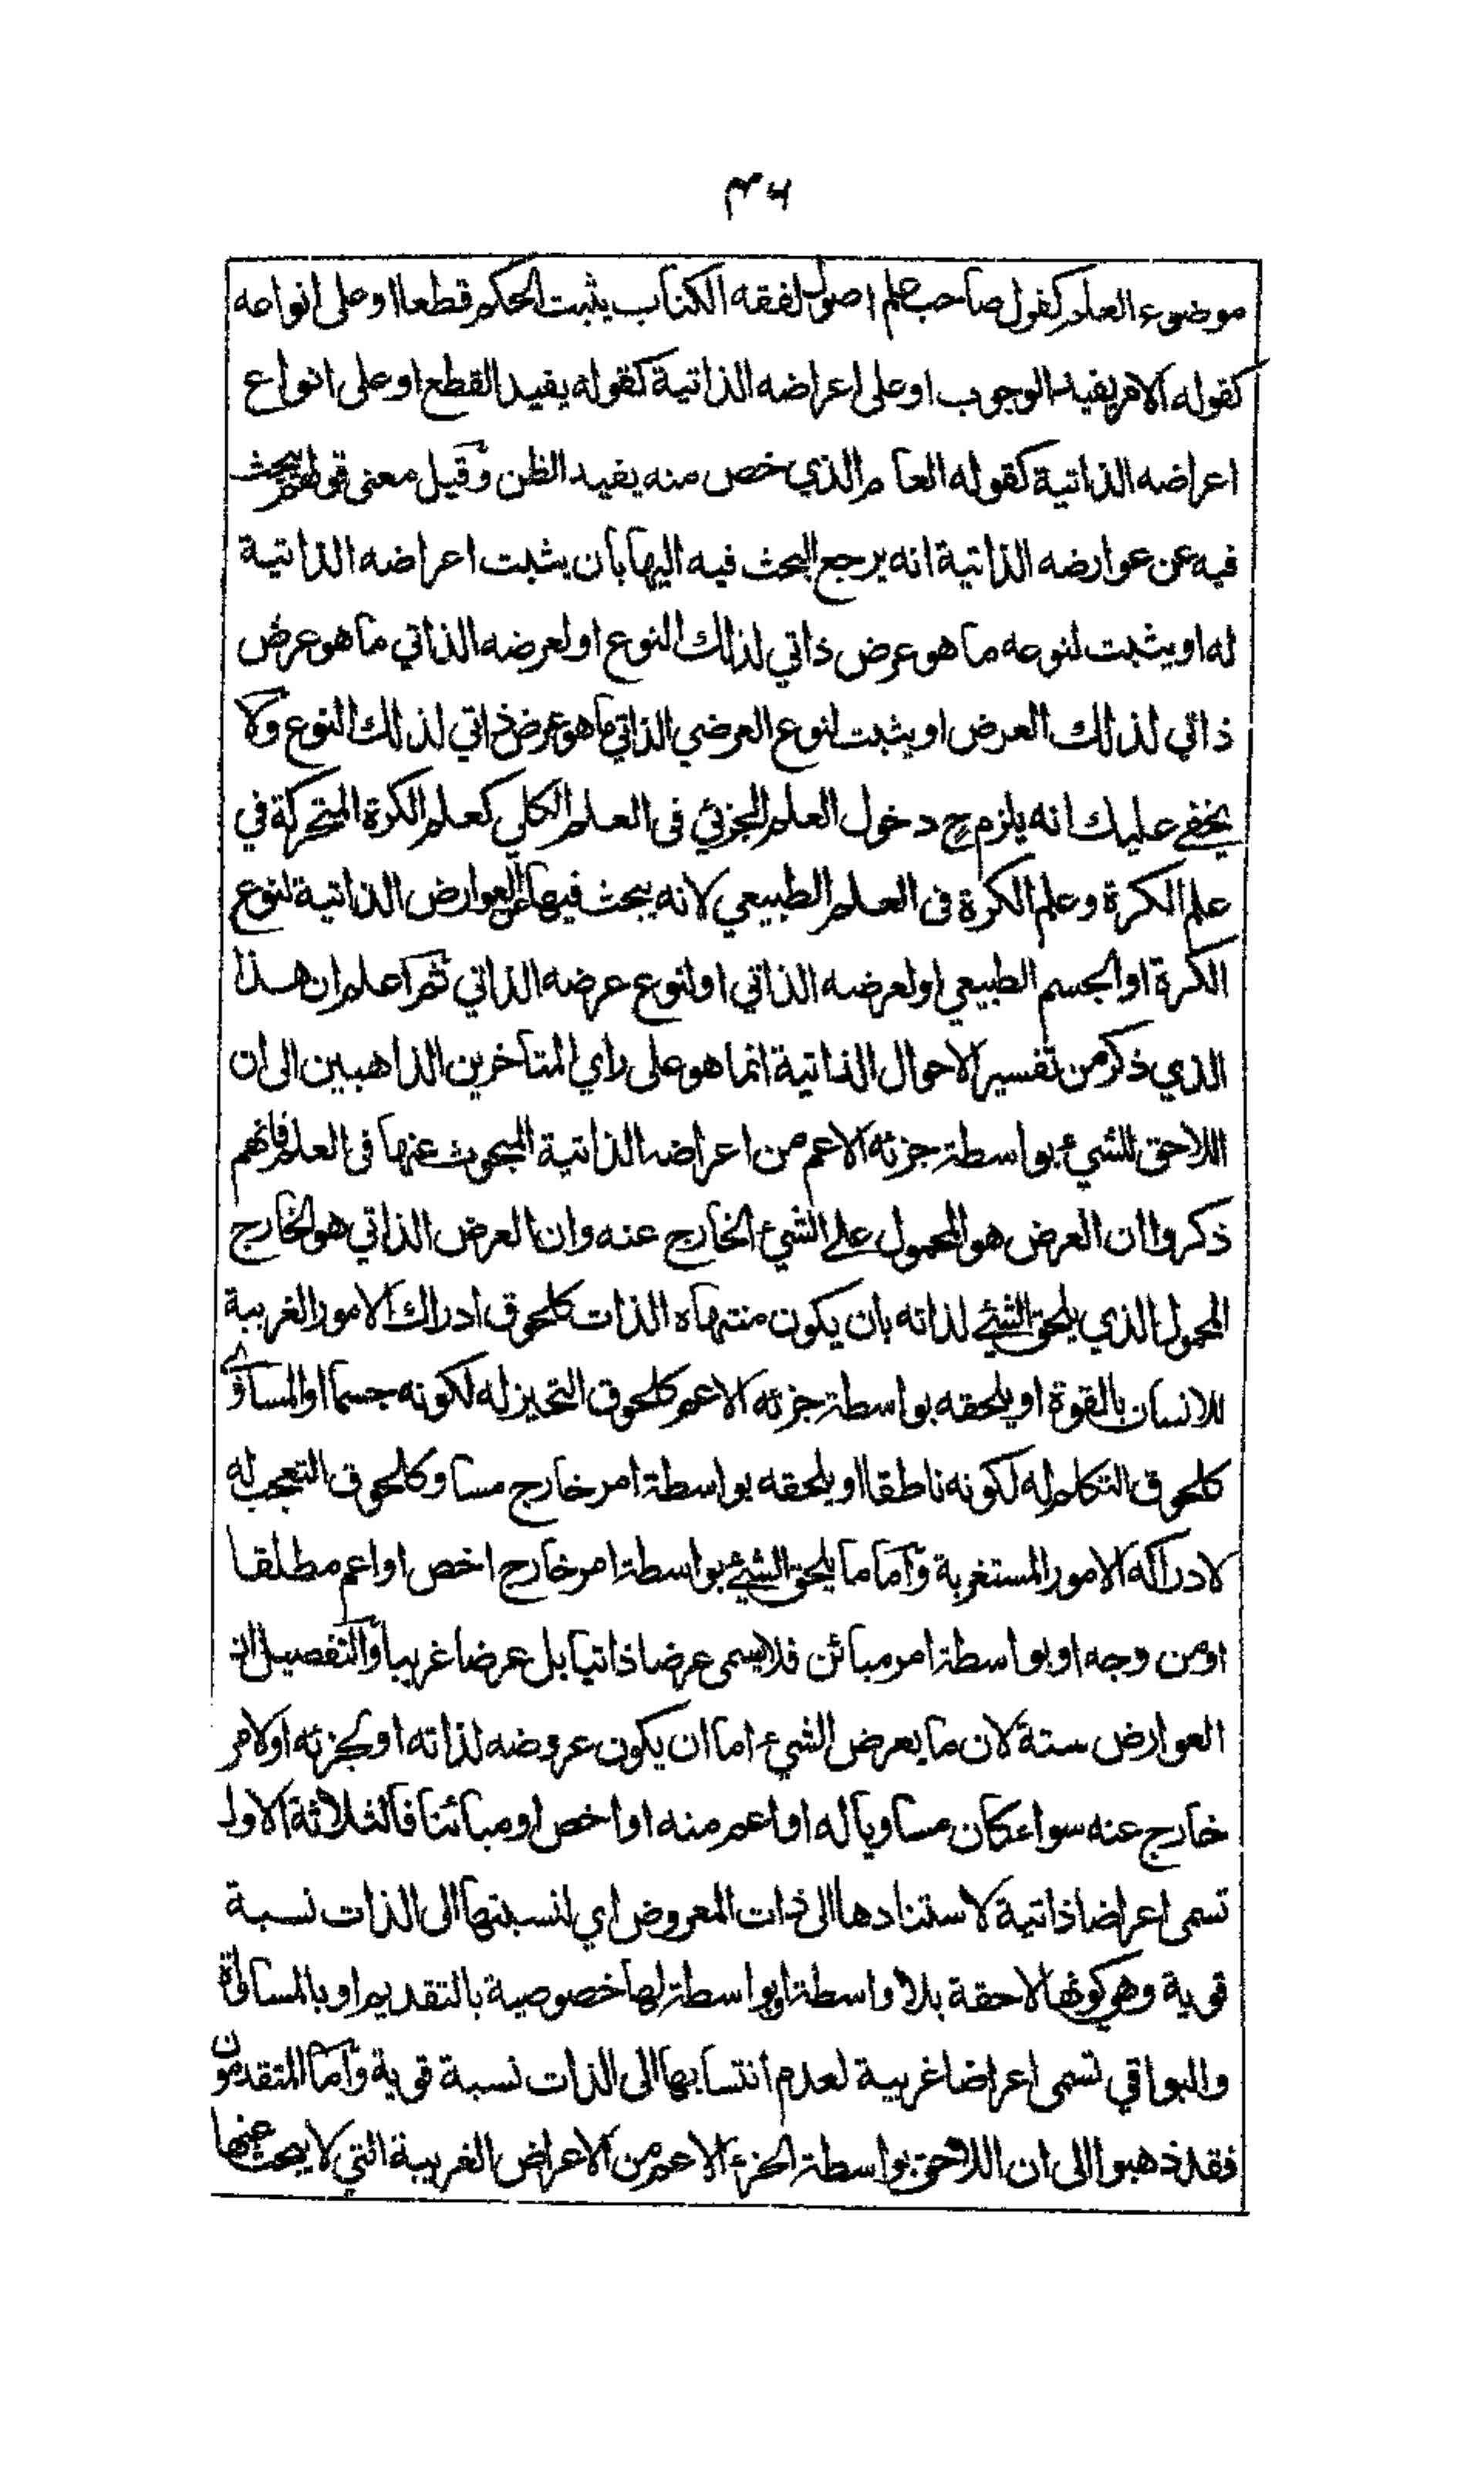 ٤٦
موضوع العلم كقول صاحب علم اصول الفقه الكتاب يثبت الحكم قطعا او على انواعه
كقوله الامر يفيد الوجوب او على اعراضه الذاتية كقوله يفيد القطع او على انواع
اعراضه الذاتية كقوله العام الذي خص منه يفيد الظن وقيل معنى قولهم يبحث
فيه عن عوارضه الذاتية انه يرجع البحث فيه اليها بان يثبت اعراضه الذاتية
له او يثبت لنوعه ما هو عرض ذاتي لذلك النوع او لعرضه الذاتي ما هو عرض
ذاتي لذلك العرض او يثبت لنوع العرضي الذاتي ما هو عرض ذاتي لذلك النوع ولا
يخفى عليك انه يلزم ح دخول العلم الجزئي في العلم الكلي كعلم الكرة المتحركة في
علم الكرة وعلم الكرة في العلم الطبيعي لانه يبحث فيها عن العوارض الذاتية لنوع
الكرة او الجسم الطبيعي او لعرضه الذاتي او لنوع عرضه الذاتي ثم اعلم ان هذا
الذي ذكر من تفسير الاحوال الذاتية انما هو على راي المتاخرين الذاهبين الى ان
اللاحق للشيء بواسطة جزئه الاعم من اعراضه الذاتية المبحوث عنها في العلم فانهم
ذكروا ان العرض هو المحمول على الشيء الخارج عنه وان العرض الذاتي هو الخارج
المحمول الذي يلحق الشيء لذاته بان يكون منتهاه الذات كلحوق ادراك الامور الغريبة
للانسان بالقوة او يلحقه بواسطة جزئه الاعم كلحوق التحيز له لكونه جسما او المساوي
كلحوق التكلم له لكونه ناطقا او يلحقه بواسطة امر خارج مساو كلحوق التعجب له
لادراكه الامور المستغربة واما ما يلحق الشيء بواسطة امر خارج اخص او اعم مطلقا
او من وجه او بواسطة امر مبائن فلا يسمى عرضا ذاتيا بل عرضا غريبا والتفصيل ان
العوارض ستة لان ما يعرض الشيء اما ان يكون عروضه لذاته او لجزئه او لامر
خارج عنه سواء كان مساويا له او اعم منه او اخص او مبائنا فالثلاثة الاول
تسمى اعراضا ذاتية لاستنادها الى ذات المعروض اي لنسبتها الى الذات نسبة
قوية وهو كونها لاحقة بلا واسطة او بواسطة لها خصوصية بالتقديم او بالمساواة
والبواقي تسمى اعراضا غريبة لعدم انتسابها الى الذات نسبة قوية واما المتقدمون
فقد ذهبوا الى ان اللاحق بواسطة الجزء الاعم من الاعراض الغريبة التي لا يبحث عنها